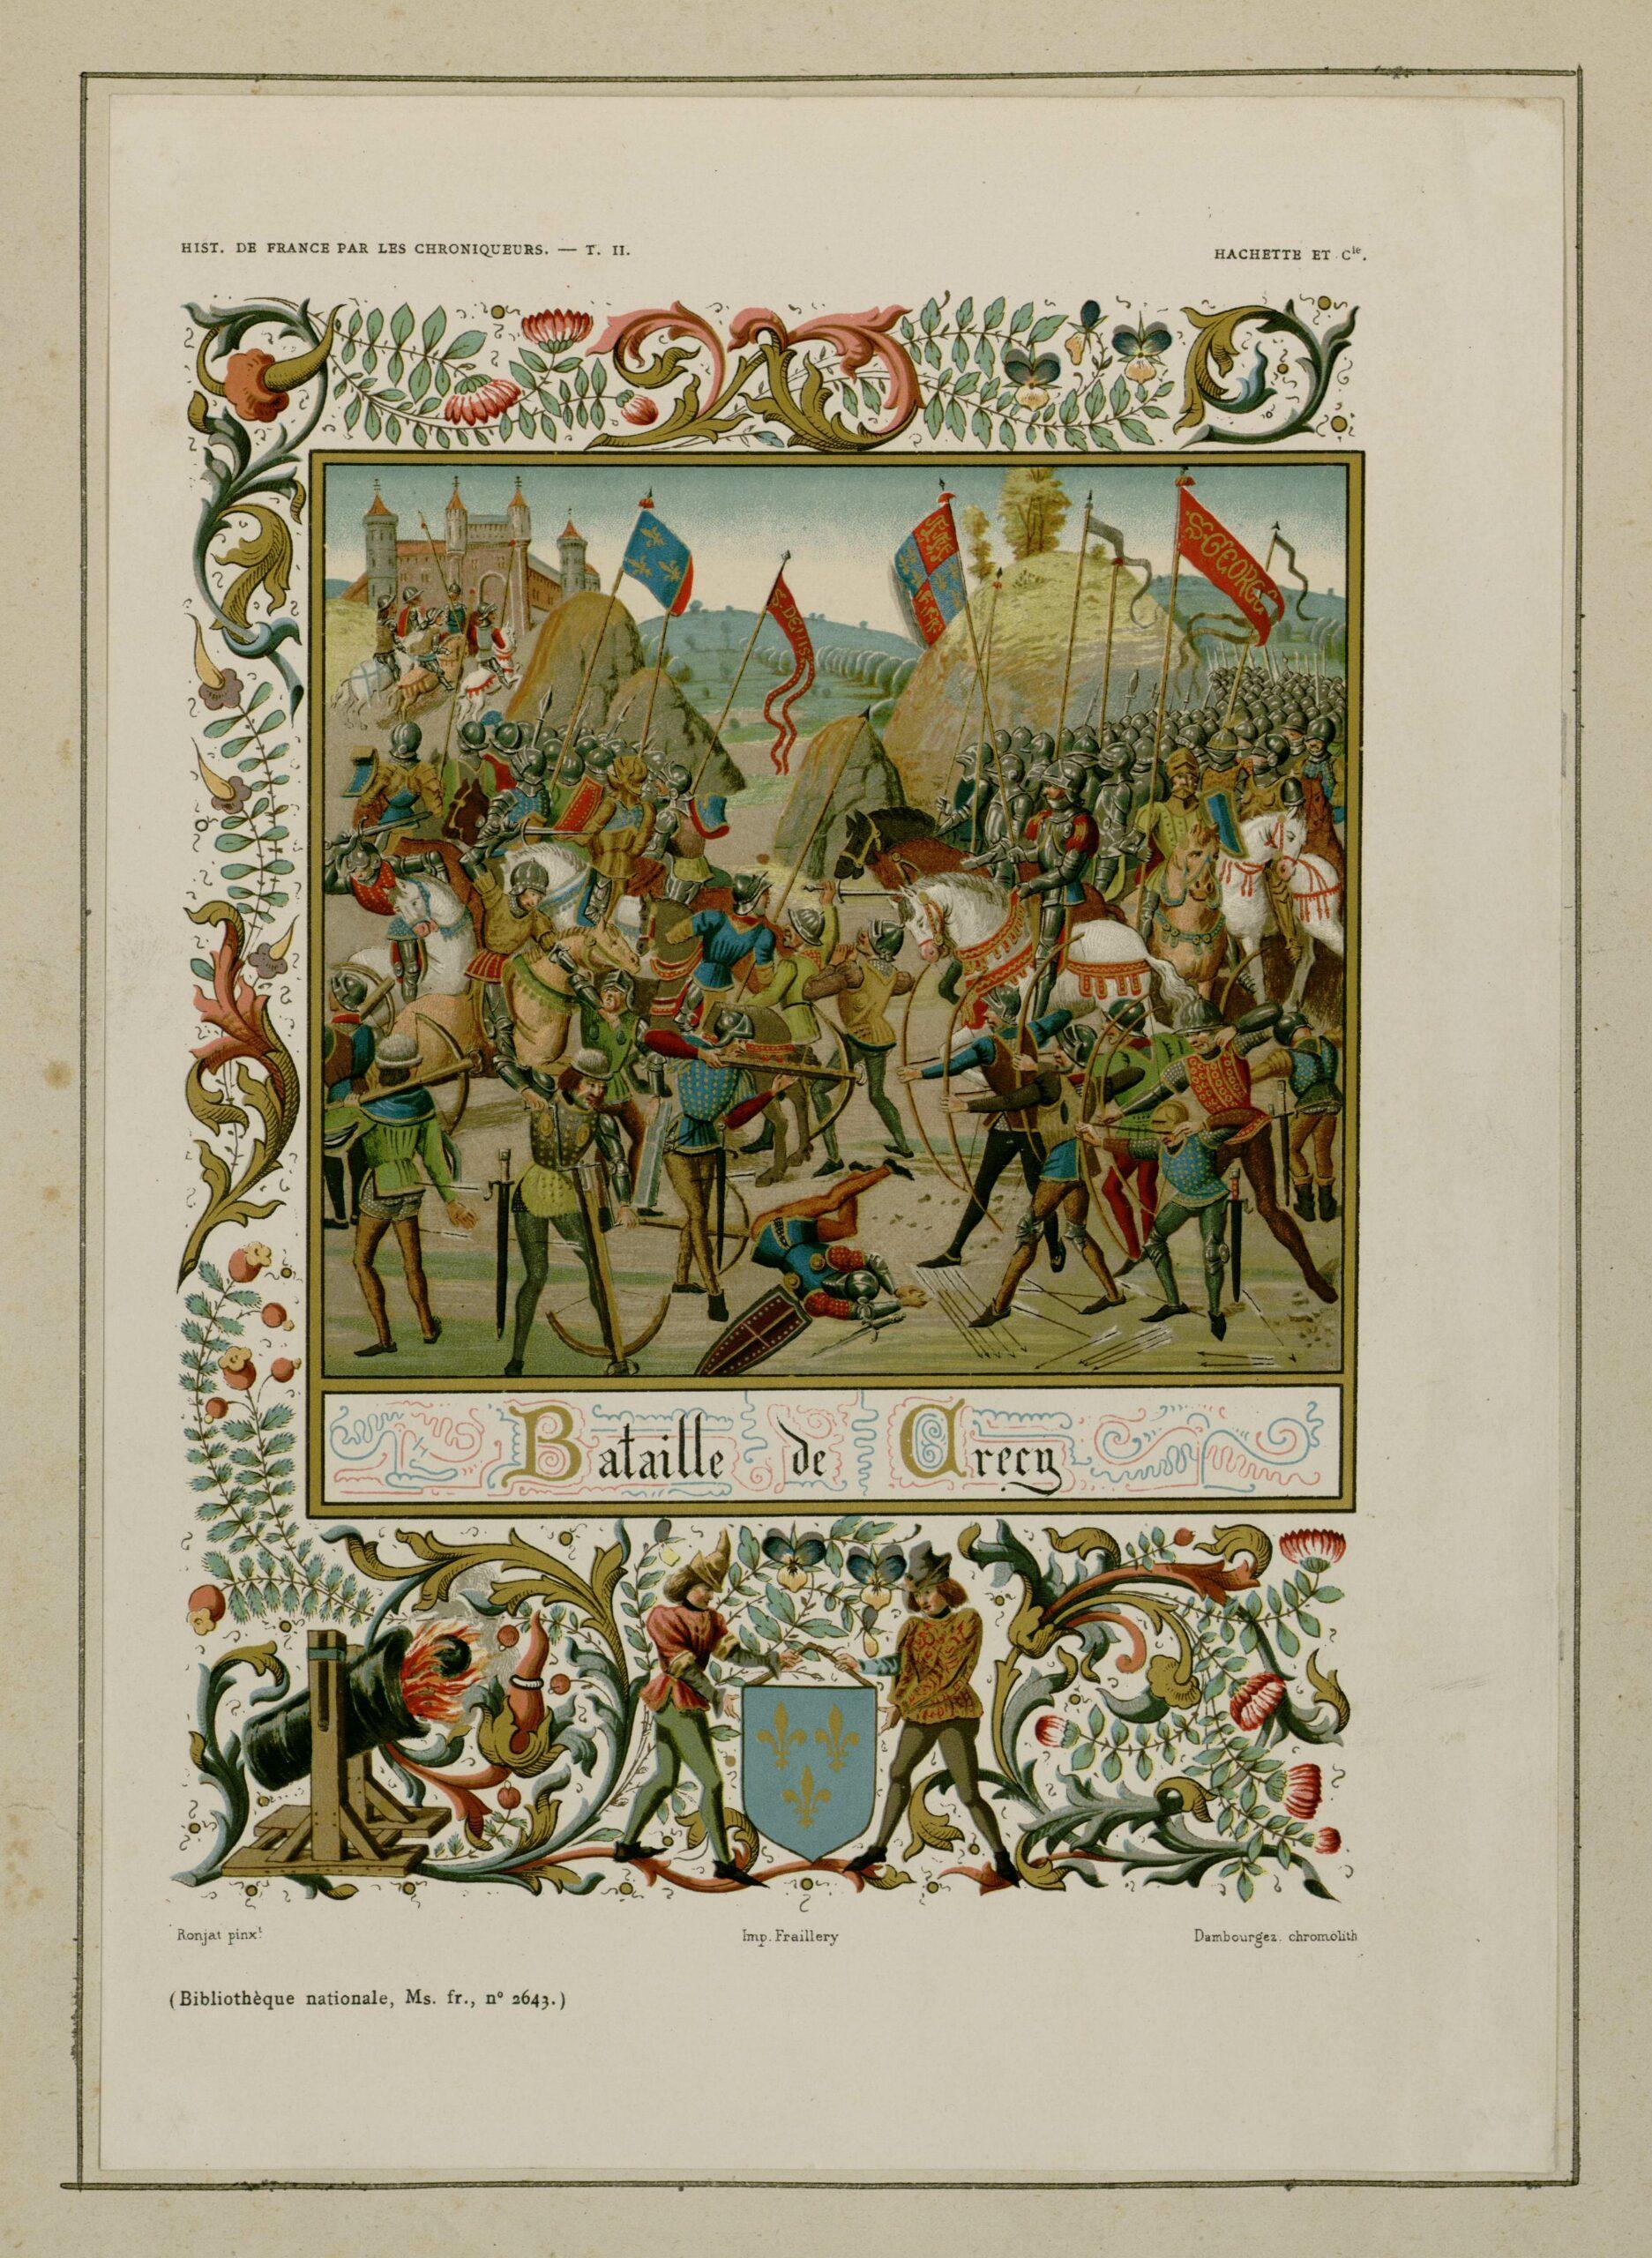 HIST. DE FRANCE PAR LES CHRONIQUEURS. — T. II.
HACHETTE ET Cie.
S. DENIS
S GEORGE
Bataille de Crecy
Ronjat pinxt
Imp. Fraillery
Dambourgez. chromolith
(Bibliothèque nationale, Ms. fr., nº 2643.)